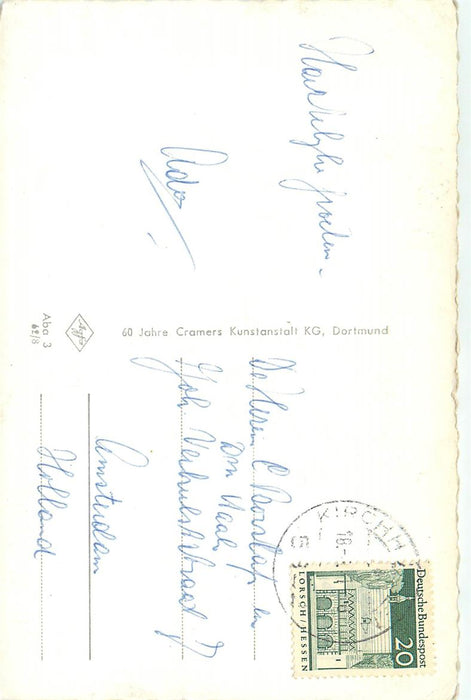 Hartelijke groeten.
Ado
60 Jahre Cramers Kunstanstalt KG, Dortmund
Agfa
Aba 3
62/8
De Heren C Borstap en
Don Waal
Joh Verhulststraat
Amsterdam
Holland
KIRCHH
18-
Deutsche Bundespost
20
LORSCH/HESSEN